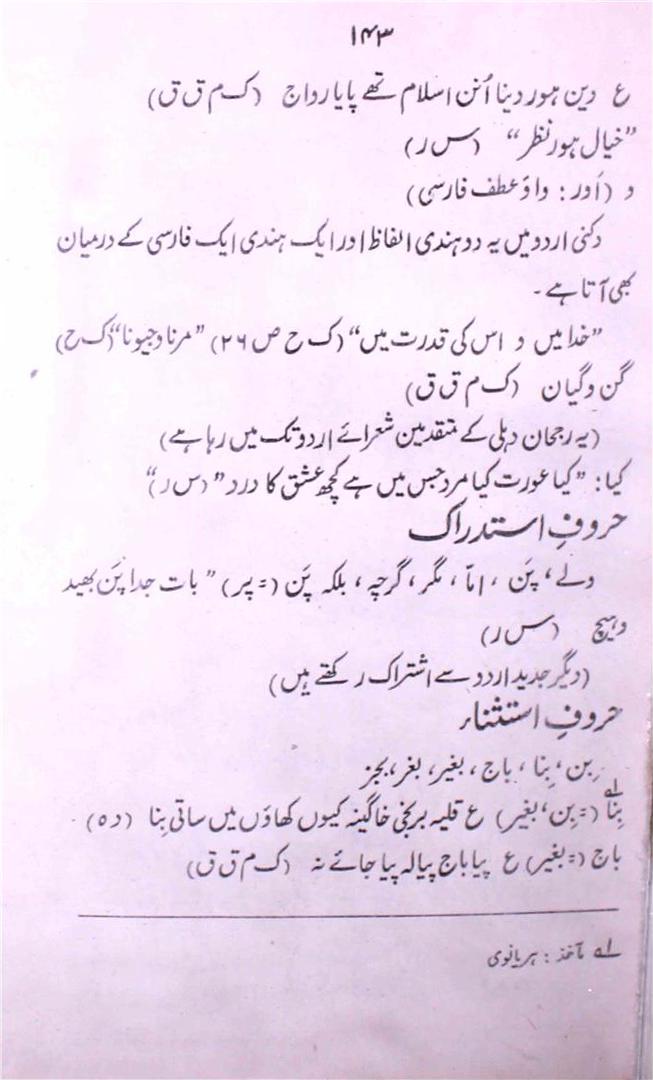 ۱۴۳
ع دین ہور دینا اُنن اسلام تھے پایا رواج (ک م ق ق)
”خیال ہور نظر“ (س ر)
و (اَور : واؤ عطف فارسی)
دکنی اردو میں یہ دو ہندی الفاظ اور ایک ہندی ایک فارسی کے درمیان
بھی آتا ہے ۔
”خدا میں و اس کی قدرت میں“ (ک ح ص ۲۶) ”مرنا و جیونا“ (ک ح)
گن و گیان (ک م ق ق)
(یہ رجحان دہلی کے متقدمین شعرائے اردو تک میں رہا ہے)
کیا : ”کیا عورت کیا مرد جس میں ہے کچھ عشق کا درد“ (س ر)“
حروفِ استدراک
ولے ، پَن ، امّا ، مگر ، گرچہ ، بلکہ پَن (= پر) ”بات جدا پَن بھید
وہیچ (س ر)
(دیگر جدید اردو سے اشتراک رکھتے ہیں)
حروفِ استثناء
بن ، بِنا ، باج ، بغیر ، بغر ، بجز
بِنا لہ (= بِن ، بغیر) ع قلیہ برنجی خاگینہ کیوں کھاؤں میں ساتی بِنا (د ۵)
باج (= بغیر) ع پیا باج پیالہ پیا جائے نہ (ک م ق ق)
لہ مآخذ : ہریانوی